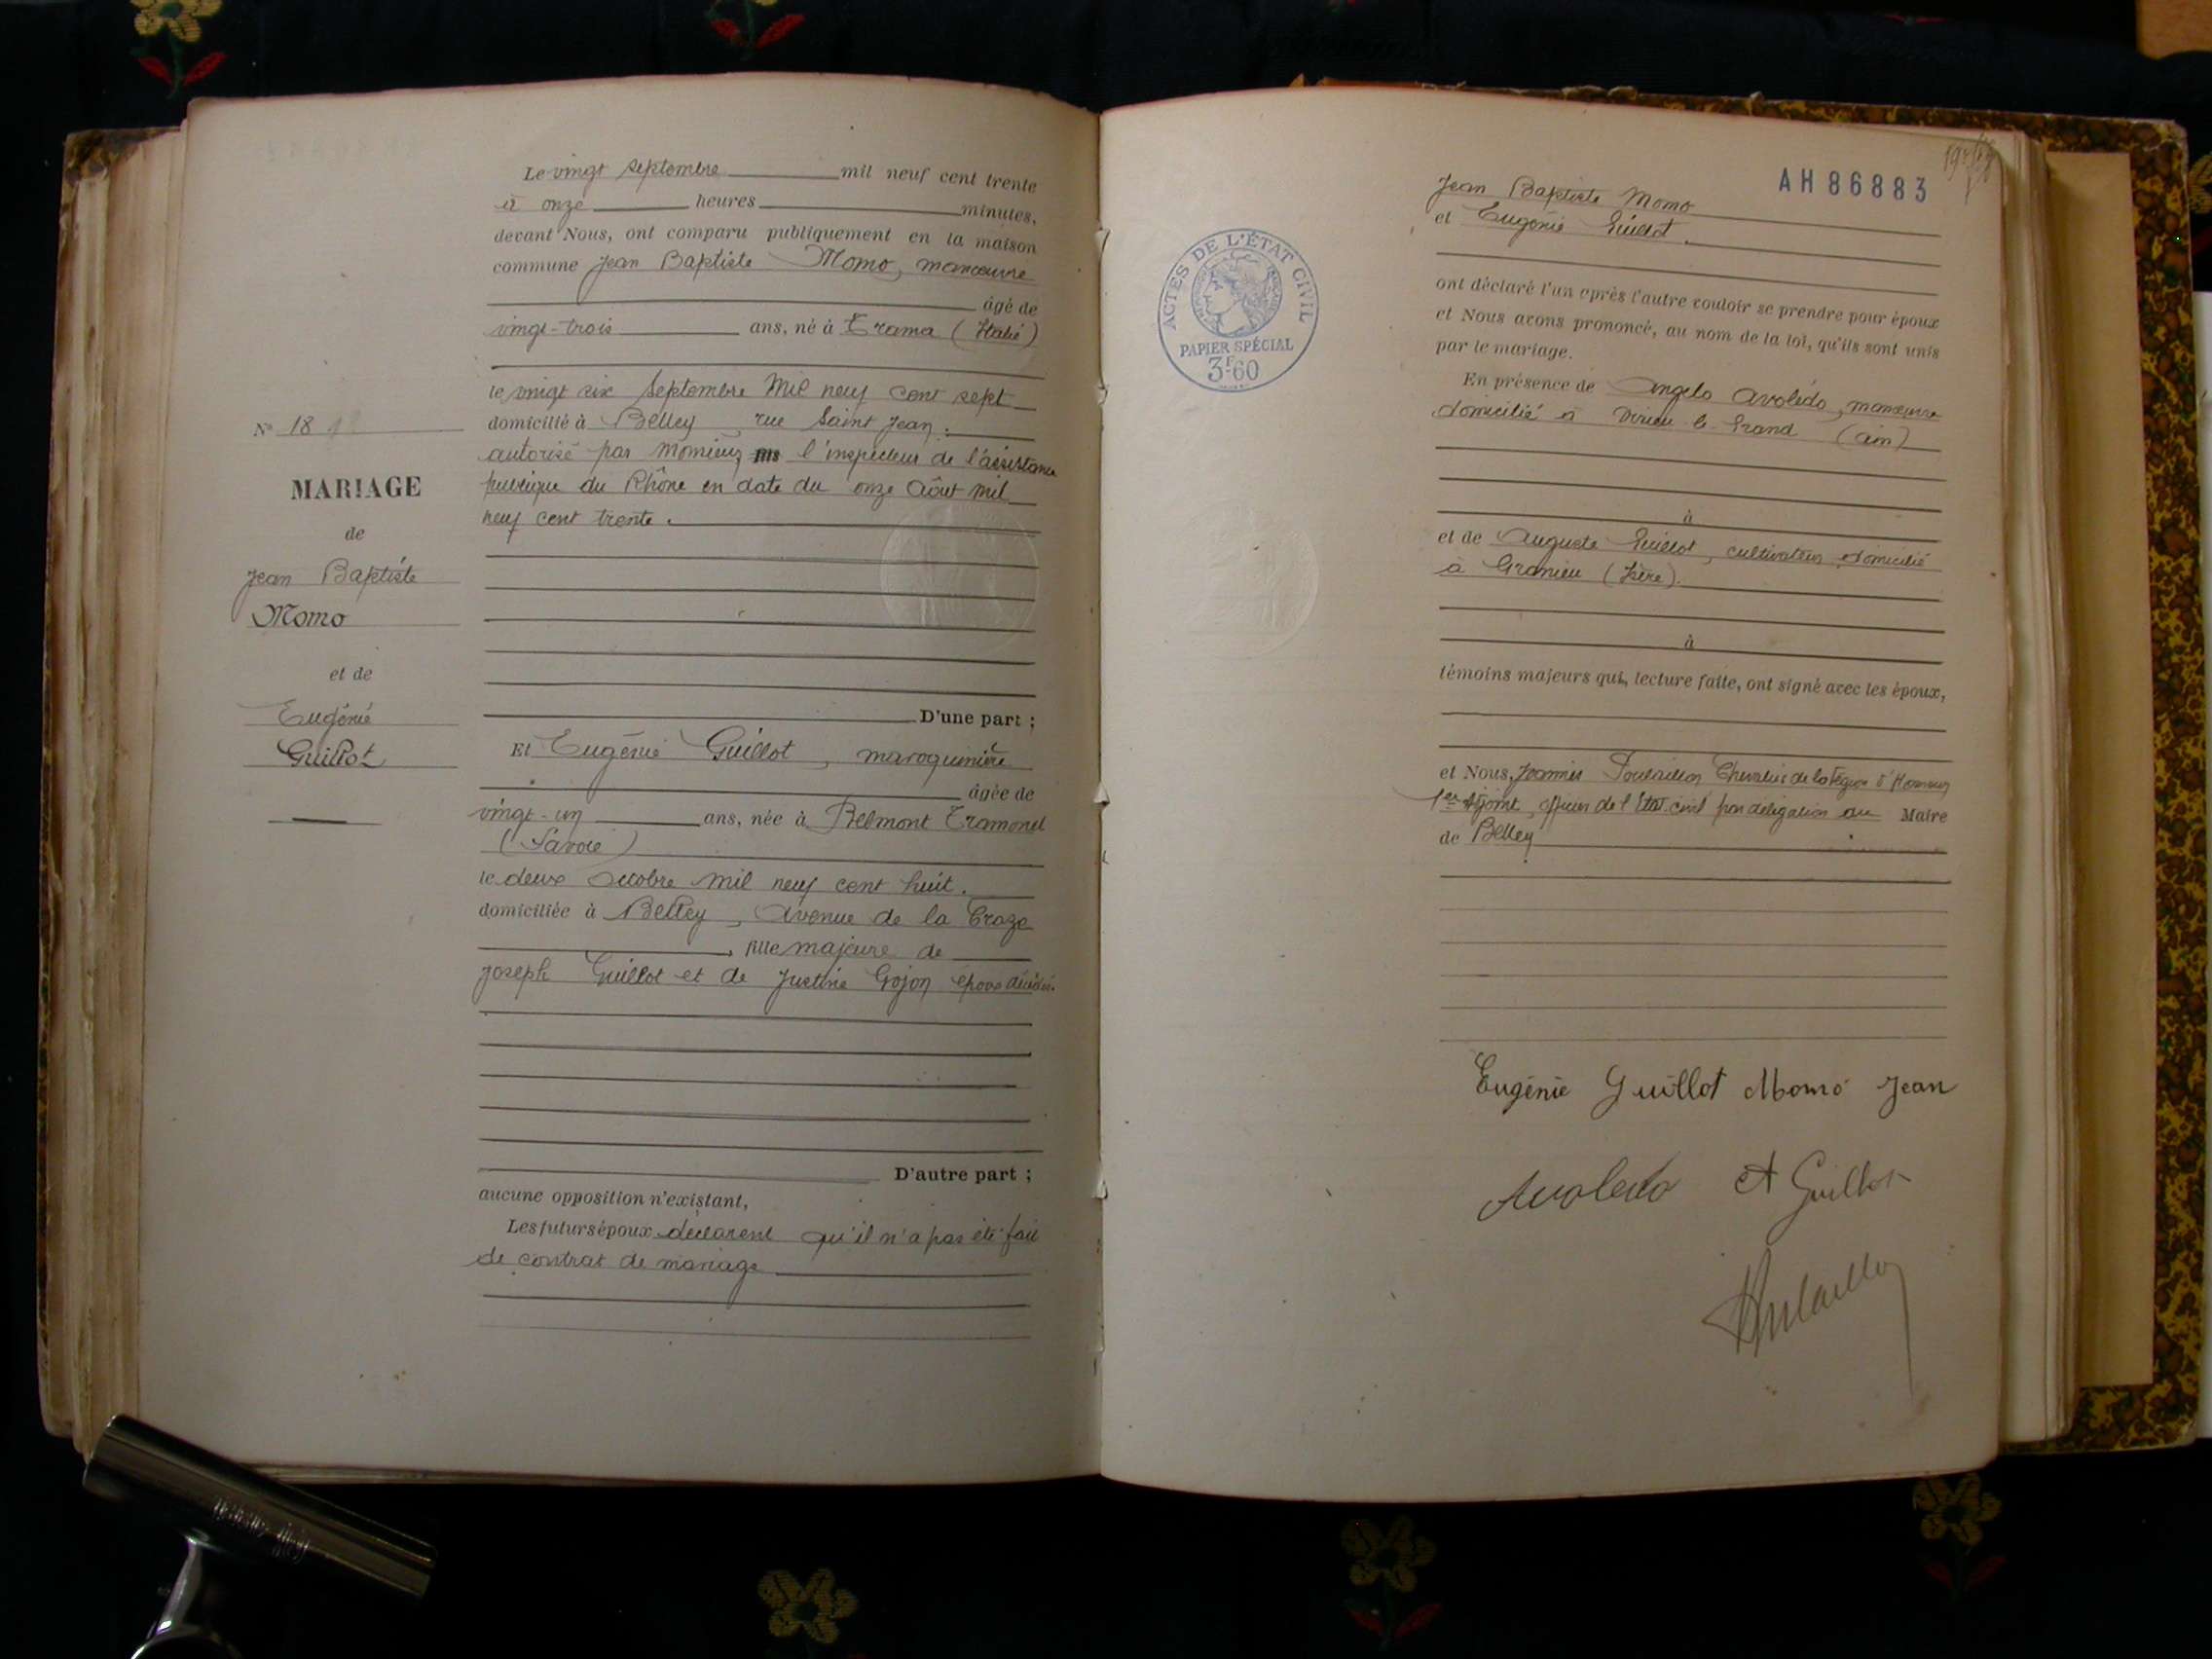 Le vingt septembre mil neuf cent trente
à onze heures minutes,
devant Nous, ont comparu publiquement en la maison
commune Jean Baptiste Momo, manœuvre
âgé de
vingt-trois ans, né à Trama (Italie)
le vingt six Septembre Mil neuf cent sept
domicilié à Belley, rue Saint Jean.
autorisé par Monsieur l'inspecteur de l'assistance
publique du Rhône en date du onze Août mil
neuf cent trente.
N° 18
MARIAGE
de
Jean Baptiste
Momo
et de
Eugénie
Guillot
D'une part ;
Et Eugénie Guillot, maroquinière
âgée de
vingt-un ans, née à Belmont Tramonet
(Savoie)
le deux Octobre mil neuf cent huit.
domiciliée à Belley, Avenue de la Craze
, fille majeure de
Joseph Guillot et de Justine Gojon époux décédés.
D'autre part ;
aucune opposition n'existant,
Les futurs époux déclarent qu'il n'a pas été fait
de contrat de mariage
AH 86883
Jean Baptiste Momo
et Eugénie Guillot.
ACTES DE L'ÉTAT CIVIL
PAPIER SPÉCIAL
3F60
ont déclaré l'un après l'autre vouloir se prendre pour époux
et Nous avons prononcé, au nom de la loi, qu'ils sont unis
par le mariage.
En présence de Angelo Avolédo, manœuvre
domicilié à Virieu-le-Grand (Ain)
à
et de Auguste Guillot, cultivateur, domicilié
à Granieu (Isère).
à
témoins majeurs qui, lecture faite, ont signé avec les époux,
et Nous, Joannès Poulaillon Chevalier de la Légion d'Honneur
1er Adjoint, officier de l'Etat-civil par délégation du Maire
de Belley
Eugénie Guillot Momo Jean
Avoledo A Guillot